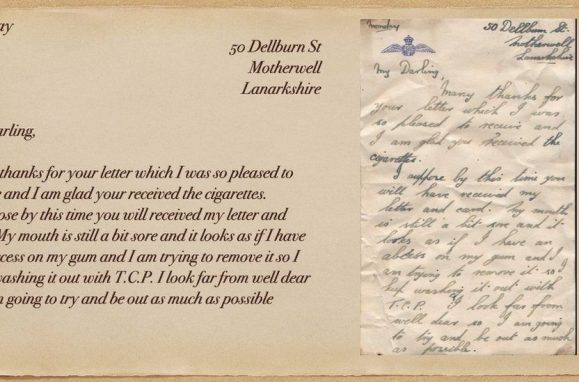 ay
50 Dellburn St
Motherwell
Lanarkshire
arling,
thanks for your letter which I was so pleased to
e and I am glad your received the cigarettes.
ose by this time you will received my letter and
My mouth is still a bit sore and it looks as if I have
cess on my gum and I am trying to remove it so I
washing it out with T.C.P. I look far from well dear
n going to try and be out as much as possible
Monday
50 Dellburn St.
Motherwell
Lanarkshire
My Darling,
Many thanks for
your letter which I was
so pleased to receive and
I am glad you received the
cigarettes.
I suppose by this time you
will have received my
letter and card. My mouth
is still a bit sore and it
looks as if I have an
abcess on my gum and I
am trying to remove it so I
kep washing it out with
T.C.P. I look far from
well dear so I am going
to try and be out as much
as possible.